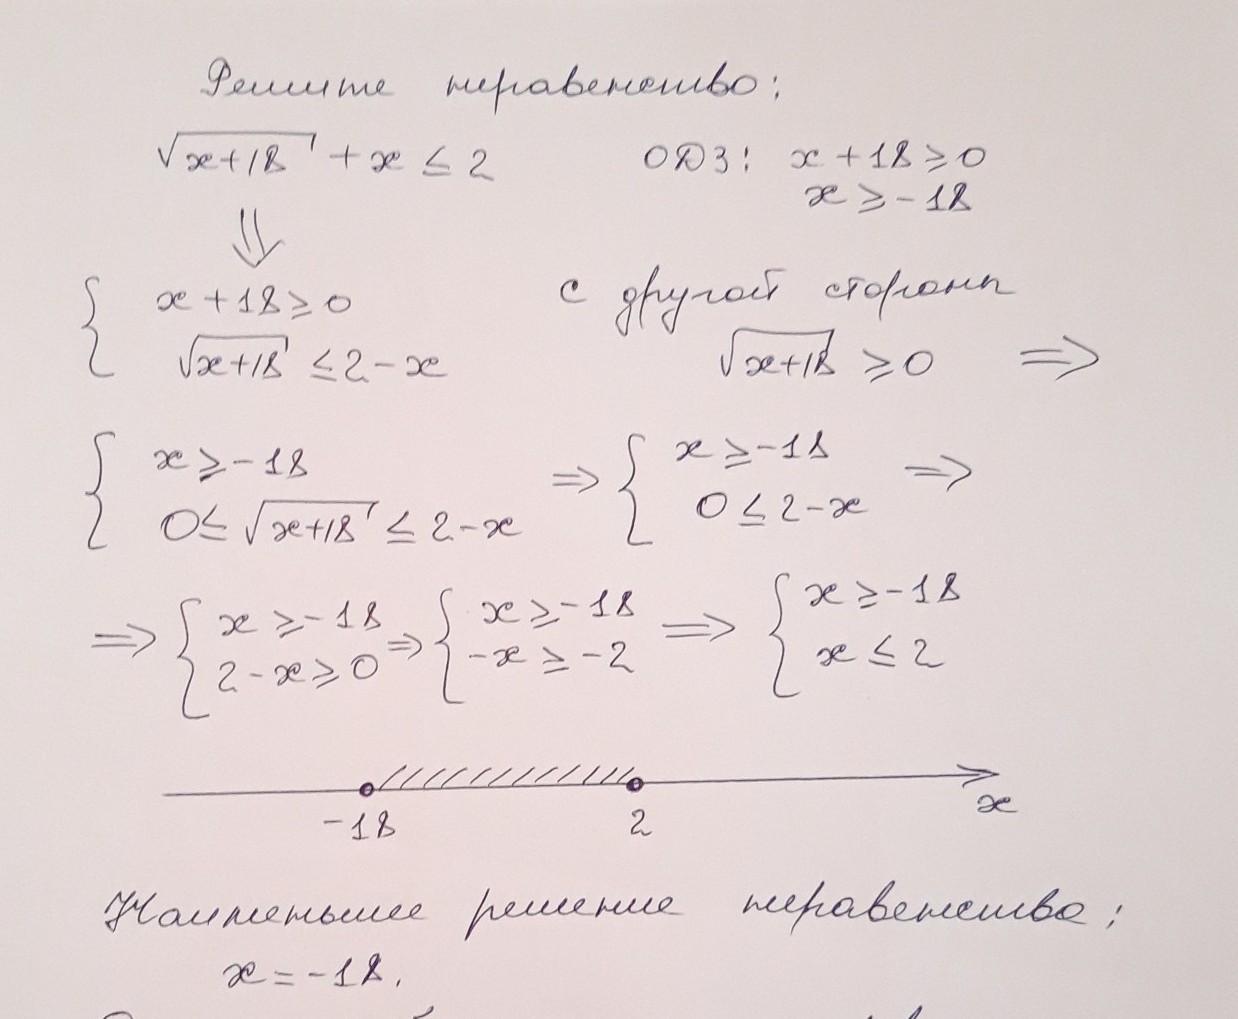 Решите неравенство:
√x+18 + x ≤ 2 ОДЗ: x + 18 ≥ 0
x ≥ -18
⇓
{ x + 18 ≥ 0 с другой стороны
√x+18 ≤ 2 - x √x+18 ≥ 0 ⇒
{ x ≥ -18 ⇒ { x ≥ -18 ⇒
0 ≤ √x+18 ≤ 2 - x 0 ≤ 2 - x
⇒ { x ≥ -18 ⇒ { x ≥ -18 ⇒ { x ≥ -18
2 - x ≥ 0 -x ≥ -2 x ≤ 2
-18 2 x
Наименьшее решение неравенства:
x = -18.